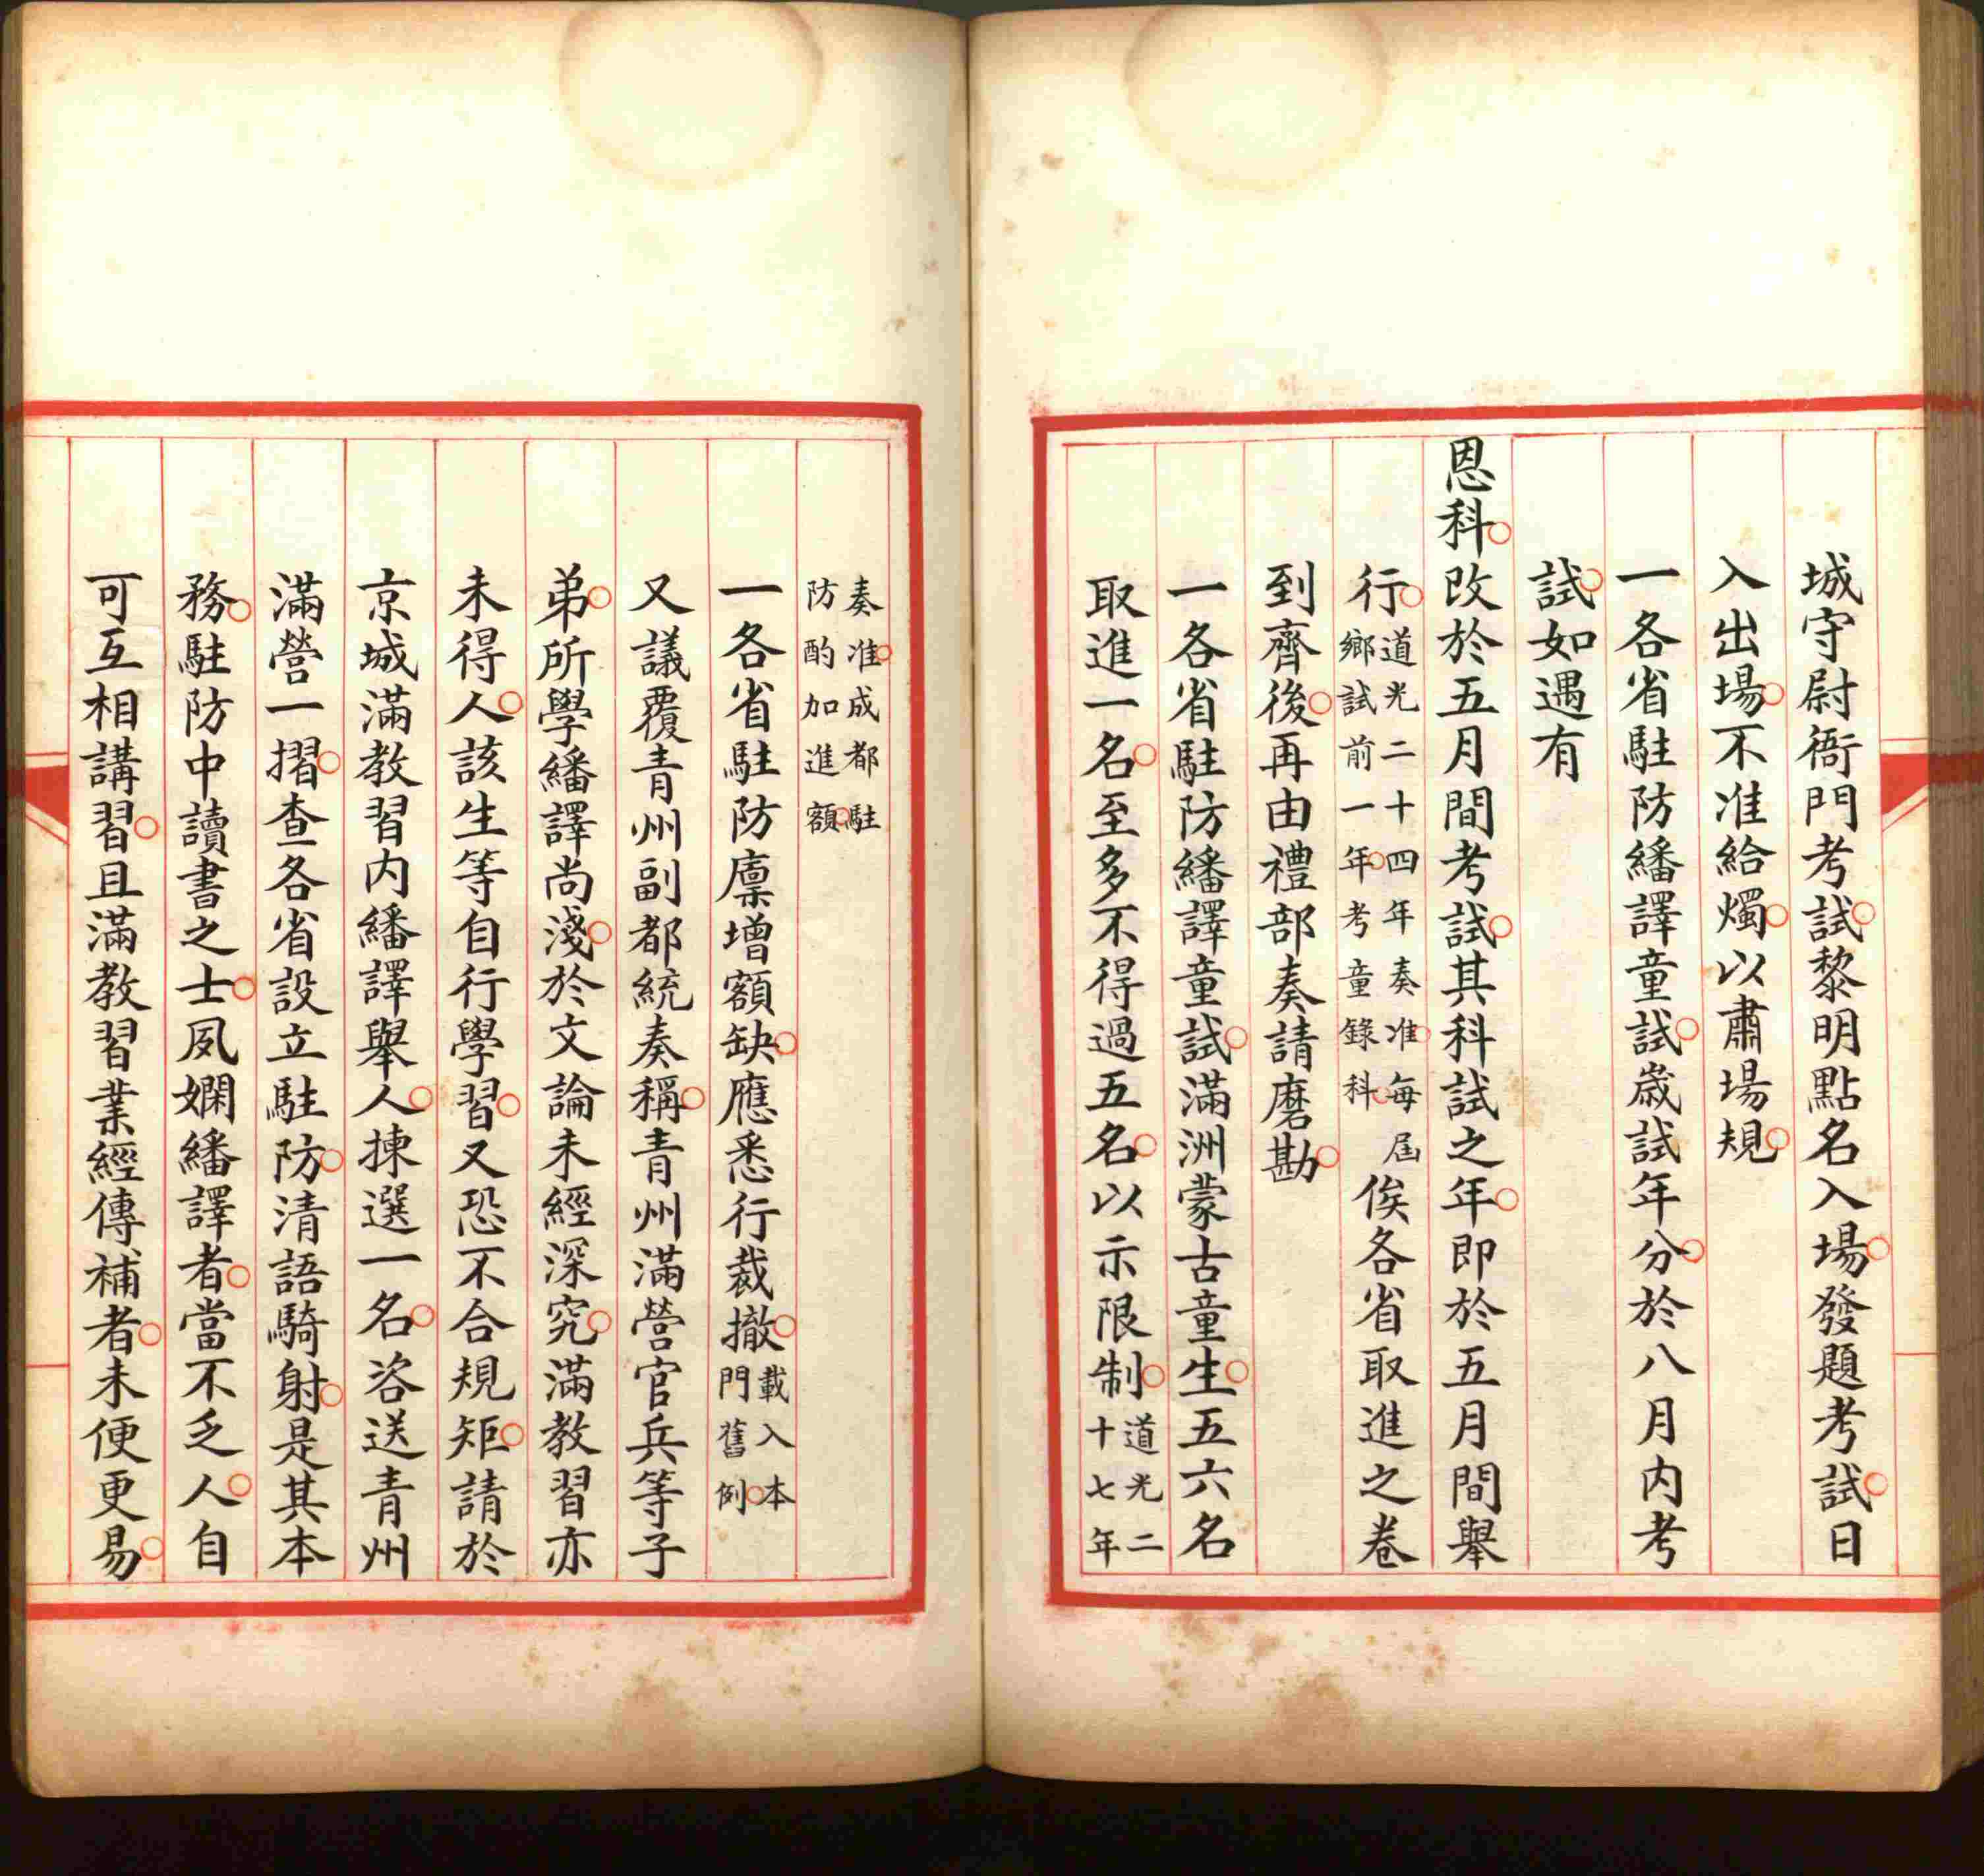 城守尉衙門考試黎明點名入場發題考試日
入出場不准給燭以肅場規
一各省駐防繙譯童試歲試年分於八月内考
試如遇有
恩科改於五月間考試其科試之年即於五月間舉
行道光二十四年奏准每屆鄉試前一年考童錄科俟各省取進之卷
到齊後再由禮部奏請磨勘
一各省駐防繙譯童試滿洲蒙古童生五六名
取進一名至多不得過五名以示限制道光二十七年
奏准成都駐防酌加進額
一各省駐防廩增額缺應悉行裁撤載入本門舊例
又議覆青州副都統奏稱青州滿營官兵等子
弟所學繙譯尚淺於文論未經深究滿教習亦
未得人該生等自行學習又恐不合規矩請於
京城滿教習内繙譯舉人揀選一名咨送青州
滿營一摺查各省設立駐防清語騎射是其本
務駐防中讀書之士夙嫻繙譯者當不乏人自
可互相講習且滿教習業經傳補者未便更易